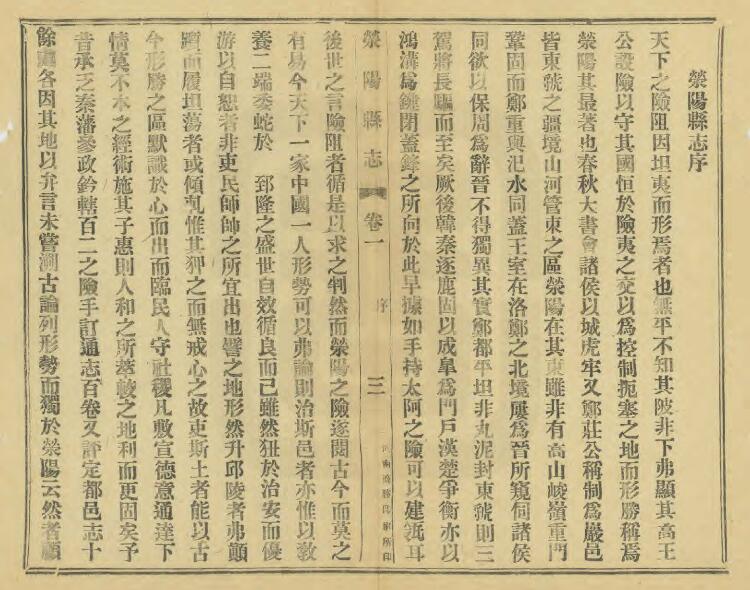 滎陽縣志序
天下之險阻因坦夷而形焉者也無平不知其陂非下弗顯其高王
公設險以守其國恒於險夷之交以爲控制扼塞之地而形勝稱焉
滎陽其最著也春秋大書會諸侯以城虎牢又鄭莊公稱制爲巖邑
皆東虢之疆境山河管束之區滎陽在其東雖非有高山峻嶺重門
鞏固而鄭重與汜水同蓋王室在洛鄭之北境屢爲晉所窺伺諸侯
同欲以保周爲辭晉不得獨異其實鄭都平坦非丸泥封東虢則三
駕將長驅而至矣厥後韓秦逐鹿固以成皐爲門戶漢楚爭衡亦以
鴻溝爲鍵閉蓋鋒之所向於此早據如手持太阿之險可以建瓴耳
滎陽縣志
卷一
序
三
後世之言險阻者循是以求之判然而滎陽之險遂閱古今而莫之
有易今天下一家中國一人形勢可以弗論則治斯邑者亦惟以敎
養二端委蛇於 郅隆之盛世自效循良而已雖然狃於治安而優
游以自恕者非吏民師帥之所宜出也譬之地形然升邱陵者弗顚
躓而履坦蕩者或傾軋惟其狎之而無戒心之故吏斯土者能以古
今形勝之區默識於心而出而臨民人守社稷凡敷宣德意通達下
情莫不本之經術施其子惠則人和之所萃較之地利而更固矣予
昔承乏秦藩參政鈐轄百二之險手訂通志百卷又評定都邑志十
餘種各因其地以弁言未嘗溯古論列形勢而獨於滎陽云然者顧